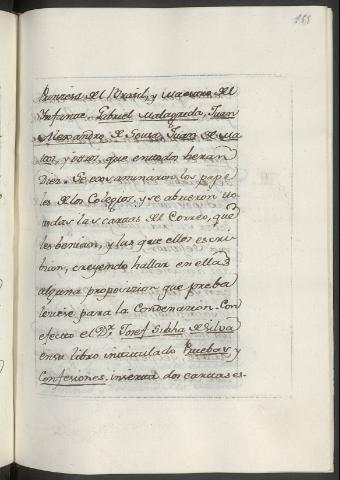 155
Princesa del Brasil, y Maestro del
Infante, Gabriel Malagrida, Juan
Alexandro de Souza, Juan de Ma
tos, y otros, que en todos heran
Diez. Se examinaron los pape
les de los Colegios, y se abrieron to
das las cartas del Correo, que
les benian, y las que ellos escri
bian, creyendo hallar en ellas
alguna proposizion que preba
leciese para la Condenazion. Con
efecto el Dr. Josef Siabra de Silva
en su libro intitulado Pruebas y
Confesiones, inserta dos cartas es-